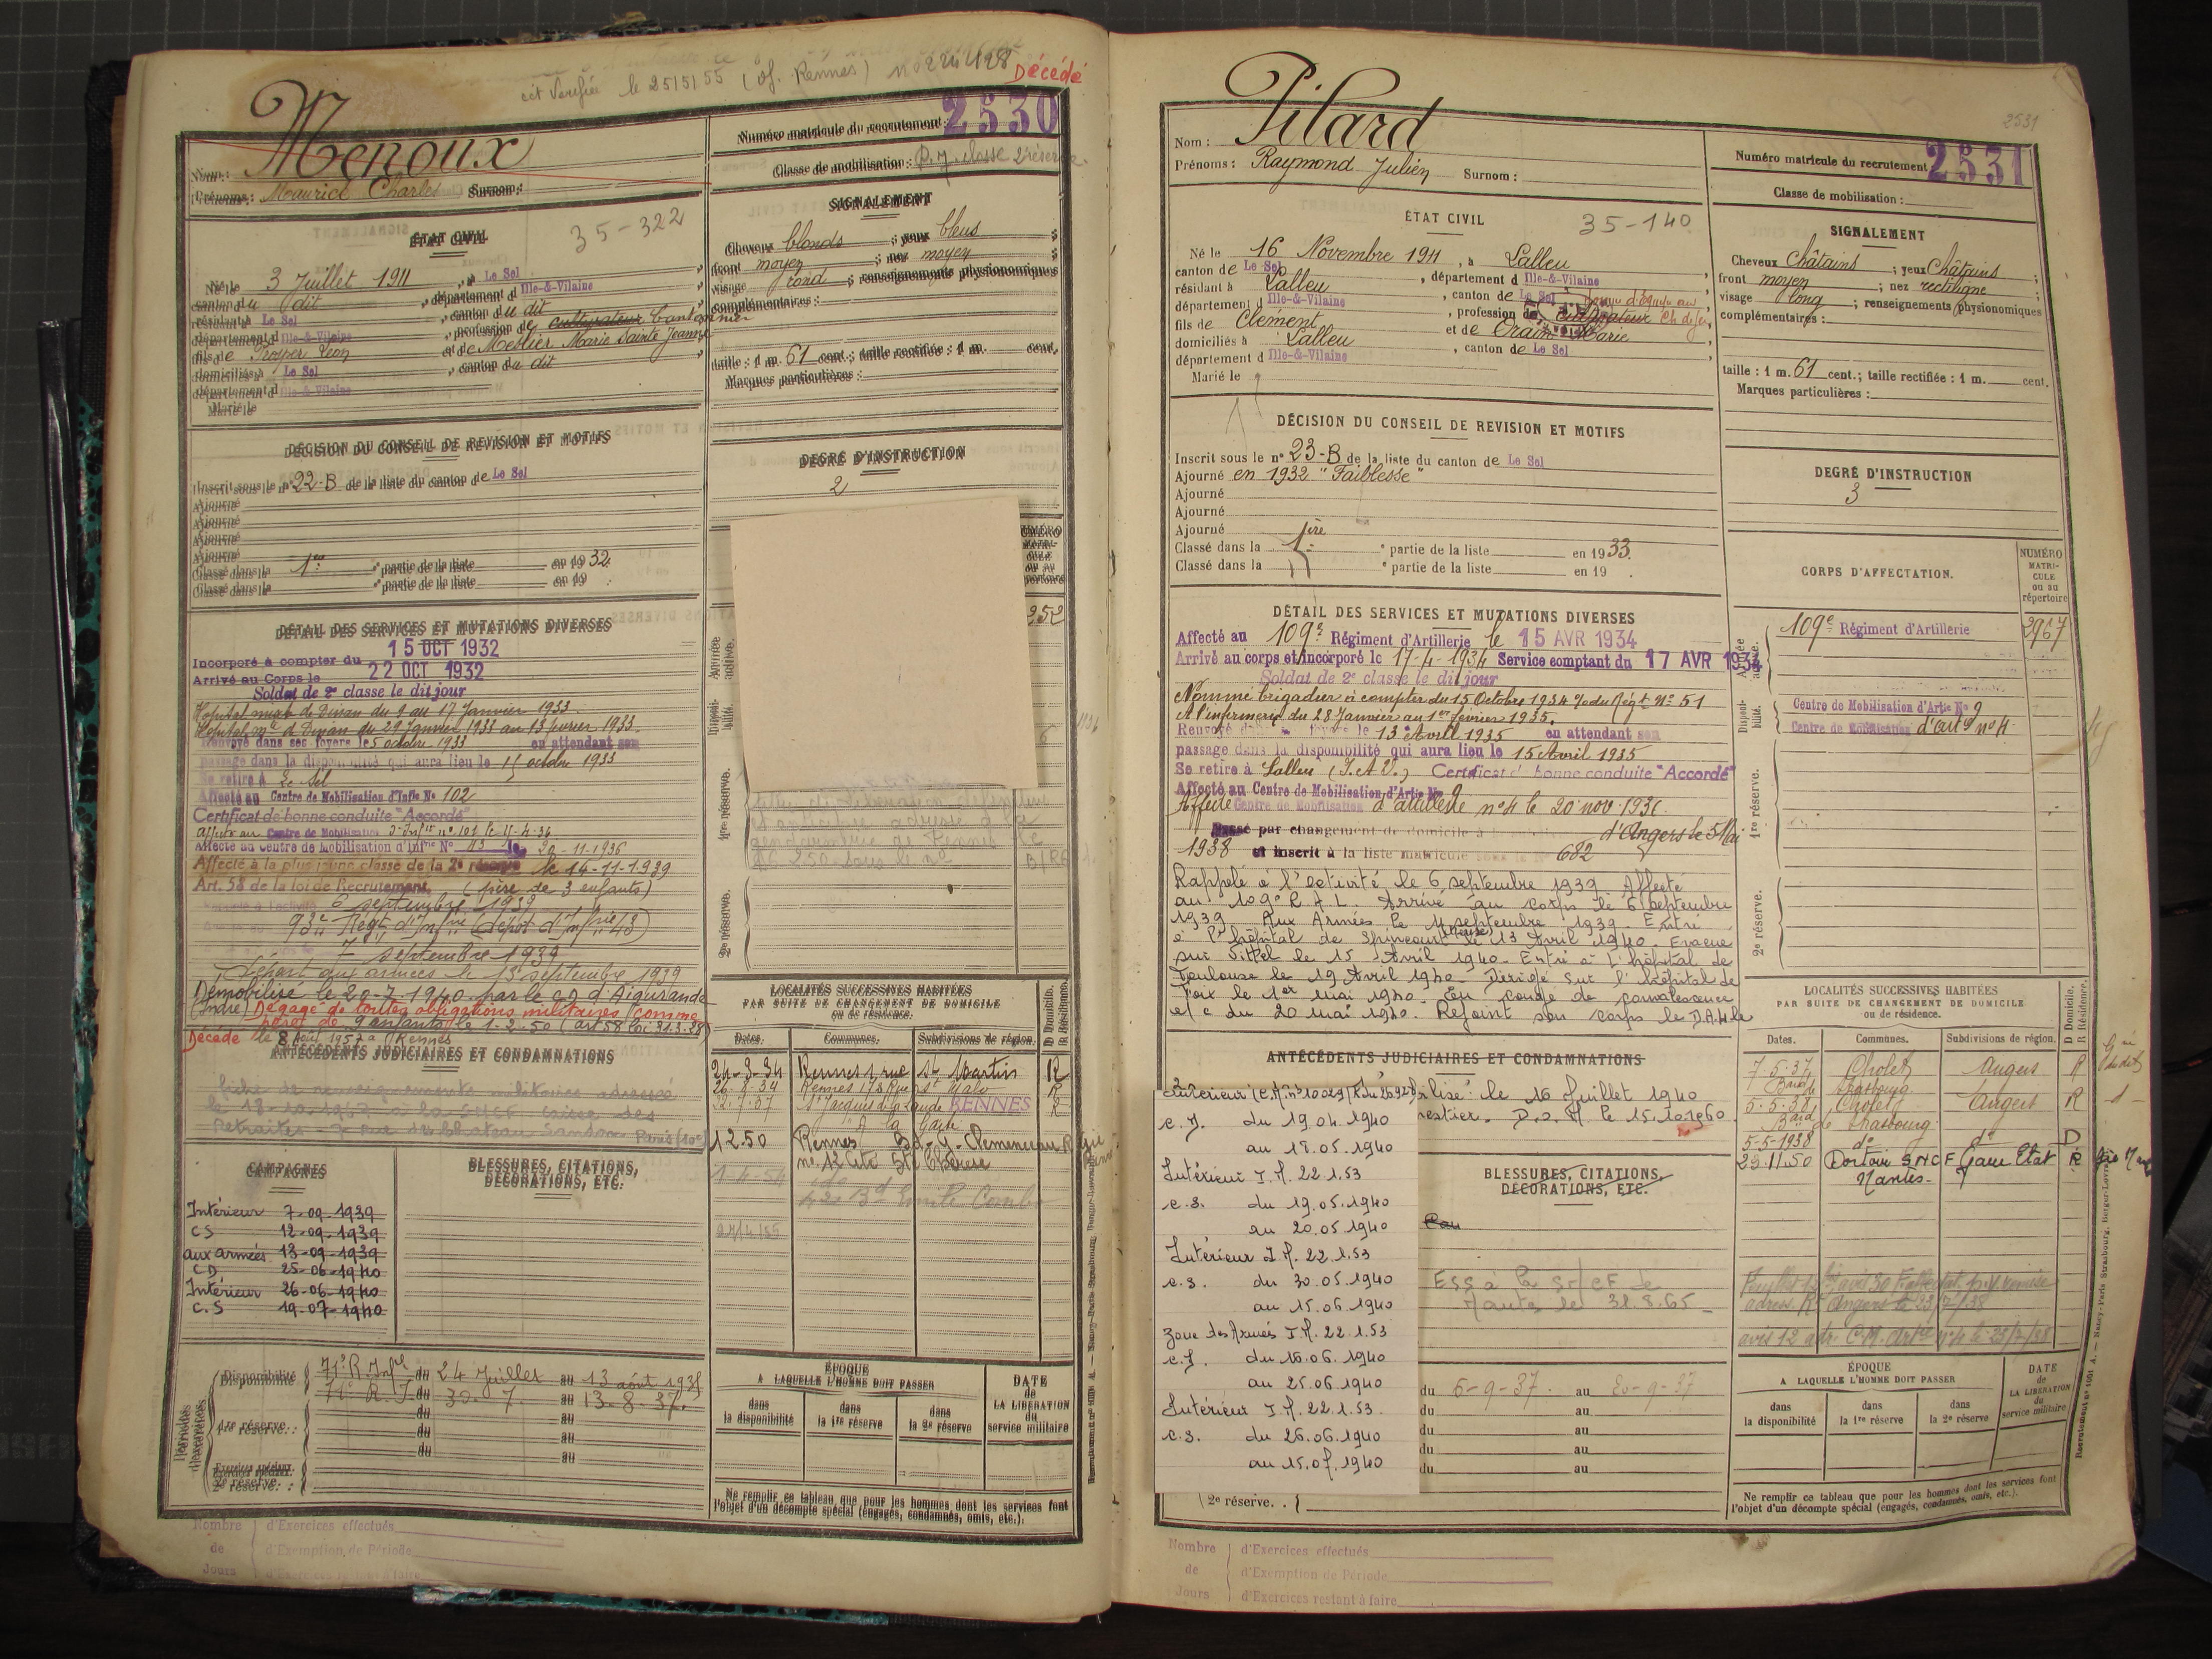 cét Verifié le 25/5/55 (of. Rennes)
Décédé
Menoux
Nom :
Prénoms : Maurice Charles Surnom :
Numéro matricule du recrutement : 2530
Classe de mobilisation : P. J. classe 2e réserve
ÉTAT CIVIL
35-322
Né le 3 Juillet 1911, à Le Sel
canton du dit, département d Ille-&-Vilaine
résidant à Le Sel, canton du dit
département d Ille-&-Vilaine, profession de cultivateur Cantonnier
fils de Prosper Léon et de Meslier Marie Sainte Jeanne
domiciliés à Le Sel, canton du dit
département d Ille-&-Vilaine
Marié le
SIGNALEMENT
Cheveux blonds ; yeux bleus ;
front moyen ; nez moyen ;
visage rond ; renseignements physionomiques
complémentaires :
taille : 1 m. 61 cent. ; taille rectifiée : 1 m. cent.
Marques particulières :
DÉCISION DU CONSEIL DE REVISION ET MOTIFS
Inscrit sous le n° 22-B de la liste du canton de Le Sel
Ajourné
Ajourné
Ajourné
Ajourné
Classé dans la 1re partie de la liste en 1932
Classé dans la partie de la liste en 19
DEGRÉ D'INSTRUCTION
2
DÉTAIL DES SERVICES ET MUTATIONS DIVERSES
Incorporé à compter du 15 OCT 1932
Arrivé au Corps le 22 OCT 1932
Soldat de 2e classe le dit jour
Hôpital mixte de Dinan du 9 au 17 Janvier 1933.
Hôpital mte de Dinan du 29 Janvier 1933 au 13 février 1933.
Renvoyé dans ses foyers le 5 octobre 1933 en attendant son
passage dans la disponibilité qui aura lieu le 15 octobre 1933
Se retire à Le Sel
Affecté au Centre de Mobilisation d'Infie No 102
Certificat de bonne conduite "Accordé"
Affecté au Centre de Mobilisation d'Infie n° 101 le 15-4-36
Affecté au Centre de Mobilisation d'Infrie No 43 le 20-11-1936
Affecté à la plus jeune classe de la 2e réserve le 14-11-1939
Art. 58 de la loi de Recrutement (père de 3 enfants)
6 septembre 1939
93e Régt d'Infrie (dépôt d'Infrie 43)
7 septembre 1939
Départ aux armées le 13 septembre 1939
Démobilisé le 20-7-1940 par le CD d'Aigurande
(Indre) Dégagé de toutes obligations militaires comme
père de 9 enfants le 1-2-50 (art 58 loi 31.3.28)
Décédé le 8 Août 1957 à Rennes
252
6
1re réserve.
2e réserve.
ANTÉCÉDENTS JUDICIAIRES ET CONDAMNATIONS
fiche de renseignements militaires adressé
le 18-10-1967 à la SNCF caisse des
Retraites - 7 rue du Chateau Landon Paris (10e)
CAMPAGNES
Intérieur 7-09-1939
CS 12-09-1939
aux armées 13-09-1939
CD 25-06-1940
Intérieur 26-06-1940
C.S 19-07-1940
BLESSURES, CITATIONS,
DÉCORATIONS, ETC.
LOCALITÉS SUCCESSIVES HABITÉES
PAR SUITE DE CHANGEMENT DE DOMICILE
ou de résidence.
Dates. Communes. Subdivisions de région. D Domicile. R Résidence.
24-3-34 Rennes 1 rue St Martin R
26-8-34 Rennes 173 Rue St Malo R
St Jacques de la Lande RENNES R
1 2.50 Rennes Bd G. Clemenceau R
no 12 Cité Ste Thérèse
1-4-54
Périodes d'exercices
Disponibilité 71e R.Infie du 24 Juillet au 13 août 1935
71e R.I du 30-7 au 13-8-37.
1re réserve : du au
du au
Exercices spéciaux.
2e réserve : du au
ÉPOQUE
A LAQUELLE L'HOMME DOIT PASSER
dans la disponibilité
dans la 1re réserve
dans la 2e réserve
DATE de LA LIBÉRATION du service militaire
Ne remplir ce tableau que pour les hommes dont les services font
l'objet d'un décompte spécial (engagés, condamnés, omis, etc.).
Nombre de Jours
d'Exercices effectués
d'Exemption de Période
d'Exercices restant à faire
2531
Pilard
Nom :
Prénoms : Raymond Julien Surnom :
Numéro matricule du recrutement 2531
Classe de mobilisation :
ÉTAT CIVIL
35-140
Né le 16 Novembre 1911, à Lalleu
canton de Le Sel, département d Ille-&-Vilaine
résidant à Lalleu, canton de Le Sel
département d Ille-&-Vilaine, profession de cultivateur
fils de Clément et de Orain Marie
domiciliés à Lalleu, canton de Le Sel
département d Ille-&-Vilaine
Marié le
SIGNALEMENT
Cheveux Châtains ; yeux Châtains ;
front moyen ; nez rectiligne ;
visage long ; renseignements physionomiques
complémentaires :
taille : 1 m. 61 cent. ; taille rectifiée : 1 m. cent.
Marques particulières :
DÉCISION DU CONSEIL DE REVISION ET MOTIFS
Inscrit sous le n° 23-B de la liste du canton de Le Sel
Ajourné en 1932 "Faiblesse"
Ajourné
Ajourné
Ajourné
Classé dans la 1ère partie de la liste en 1933.
Classé dans la partie de la liste en 19 .
DEGRÉ D'INSTRUCTION
3
DÉTAIL DES SERVICES ET MUTATIONS DIVERSES
Affecté au 109e Régiment d'Artillerie le 15 AVR 1934
Arrivé au corps et incorporé le 17-4-1934 Service comptant du 17 AVR 1934
Soldat de 2e classe le dit jour
Nommé brigadier à compter du 15 Octobre 1934 % du Régt N° 51
A l'infirmerie du 28 Janvier au 1er février 1935.
Renvoyé dans ses foyers le 13 Avril 1935 en attendant son
passage dans la disponibilité qui aura lieu le 15 Avril 1935
Se retire à Lalleu (I. et V.) Certificat de bonne conduite "Accordé"
Affecté au Centre de Mobilisation d'Artie No 9
Affecté Centre de Mobilisation d'artillerie n°4 le 20 nov 1936.
Passé par changement de domicile à d'Angers le 5 Mai
1938 et inscrit à la liste matricule sous le No 682
Rappelé à l'activité le 6 septembre 1939. Affecté
au 109e R.A.L. Arrivé au corps le 6 septembre
1939. Aux Armées le 11 septembre 1939. Entré
à l'hôpital de Spincourt (Meuse) le 13 Avril 1940. Evacué
sur Vittel le 15 Avril 1940. Entré à l'hôpital de
Toulouse le 19 Avril 1940. Dirigé sur l'hôpital de
Foix le 1er mai 1940. En congé de convalescence
à/c du 20 mai 1940. Rejoint son corps le
CORPS D'AFFECTATION.
NUMÉRO MATRICULE ou au répertoire
109e Régiment d'Artillerie 2967
Centre de Mobilisation d'Artie No 9
Centre de Mobilisation d'artie n°4
Armée active.
Disponibilité.
1re réserve.
2e réserve.
ANTÉCÉDENTS JUDICIAIRES ET CONDAMNATIONS
le 16 Juillet 1940
BLESSURES, CITATIONS,
DÉCORATIONS, ETC.
ESS à la SNCF de
Nantes le 31.8.65
c.s. du 19.04.1940
au 18.05.1940
Intérieur I.M. 22.1.53
c.s. du 19.05.1940
au 20.05.1940
Intérieur I.M. 22.1.53
c.s. du 30.05.1940
au 15.06.1940
Zone des Armées I.M. 22.1.53
du 16.06.1940
au 25.06.1940
Intérieur I.M. 22.1.53
c.s. du 26.06.1940
au 15.07.1940
du 6-9-37. au 20-9-37
du au
du au
du au
du au
2e réserve. .
LOCALITÉS SUCCESSIVES HABITÉES
PAR SUITE DE CHANGEMENT DE DOMICILE
ou de résidence.
Dates. Communes. Subdivisions de région. D Domicile. R Résidence.
7-5-37 Cholet Angers R
Bd de Strasbourg
5-5-38 Cholet Angers R
Bd de Strasbourg
5-5-1938 do do D
23.11.50 Dortoir SNCF Gare Etat R
Nantes
ÉPOQUE
A LAQUELLE L'HOMME DOIT PASSER
dans la disponibilité
dans la 1re réserve
dans la 2e réserve
DATE de LA LIBÉRATION du service militaire
Ne remplir ce tableau que pour les hommes dont les services font
l'objet d'un décompte spécial (engagés, condamnés, omis, etc.).
Nombre de Jours
d'Exercices effectués
d'Exemption de Période
d'Exercices restant à faire